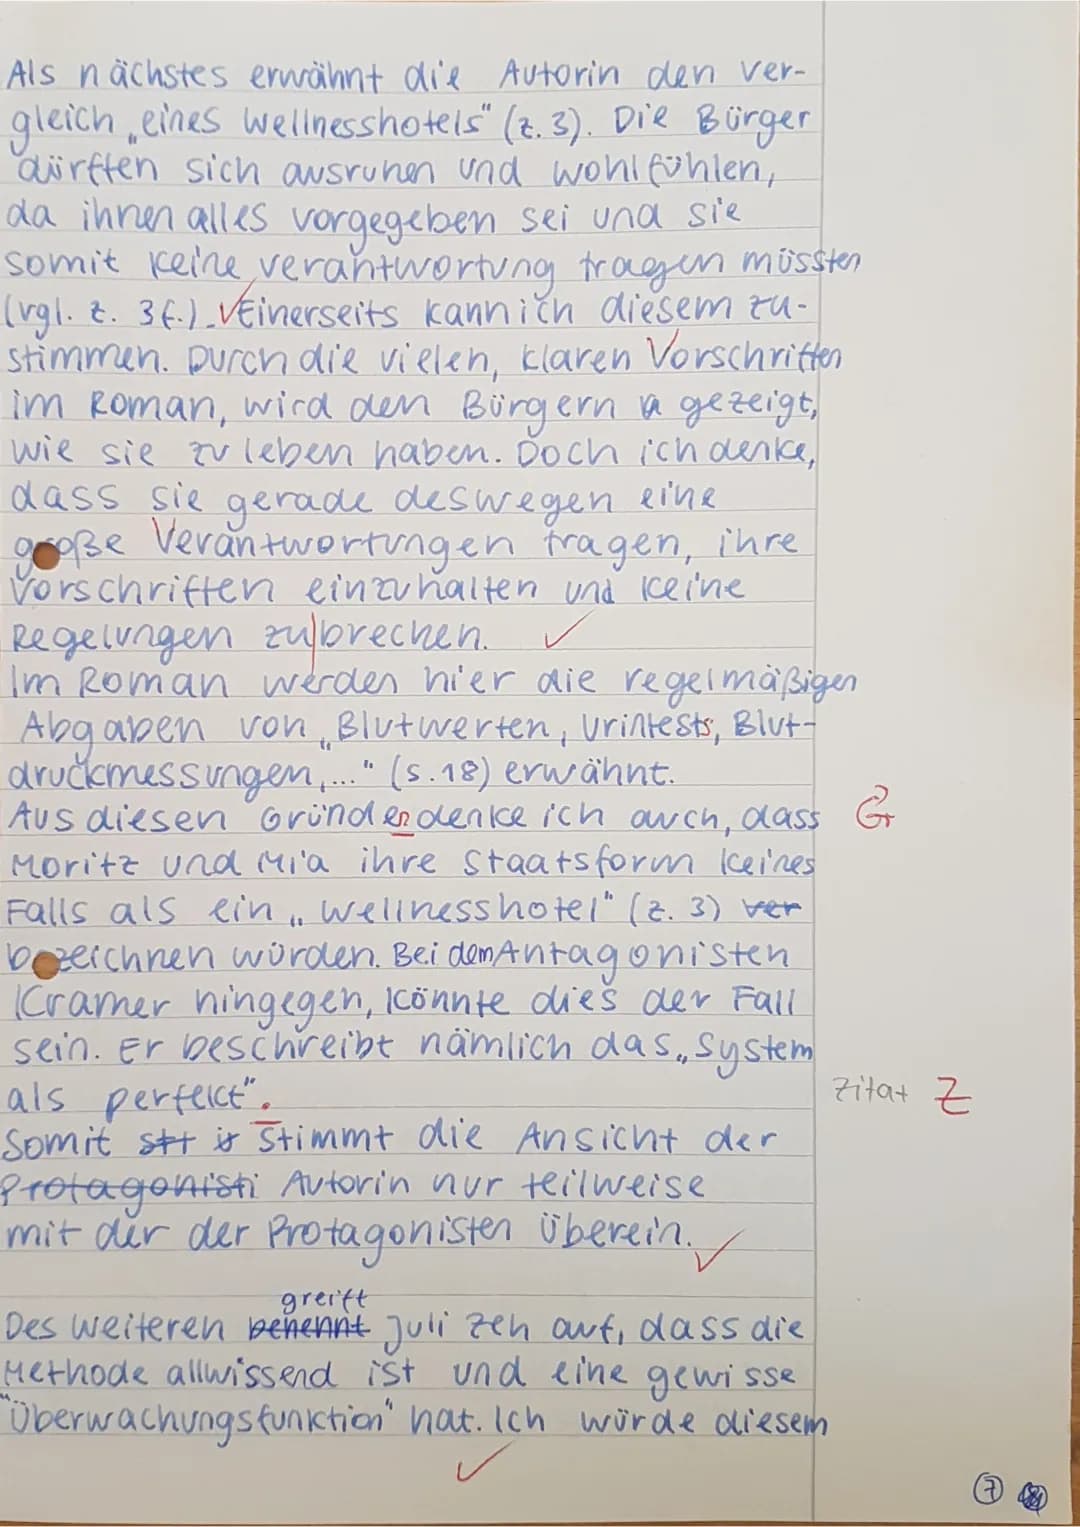 Als nächstes erwähnt die Autorin den Ver-
gleich „eines Wellnesshotels" (Z. 3). Die Bürger
dürften sich ausruhen und wohlfühlen,
da ihnen alles vorgegeben sei und sie
somit keine Verantwortung tragen müssten
(vgl. Z. 3f.). Einerseits kann ich diesem zu-
stimmen. Durch die vielen, klaren Vorschriften
im Roman, wird den Bürgern gezeigt,
wie sie zu leben haben. Doch ich denke,
dass sie gerade deswegen eine
große Verantwortungen tragen, ihre
Vorschriften einzuhalten und keine
Regelungen zu brechen.
Im Roman werden hier die regelmäßigen
Abgaben von „Blutwerten, Urintests, Blut-
druckmessungen,..." (S. 18) erwähnt.
Aus diesen Gründen denke ich auch, dass G
Moritz und Mia ihre Staatsform keines
Falls als ein „Wellnesshotel" (Z. 3) ver
bezeichnen würden. Bei dem Antagonisten
Kramer hingegen, könnte dies der Fall
sein. Er beschreibt nämlich das „System
als perfekt". Zitat Z
Somit stt is stimmt die Ansicht der
Protagonisti Autorin nur teilweise
mit der der Protagonisten überein.
greift
Des weiteren benennt Juli Zeh auf, dass die
Methode allwissend ist und eine gewisse
"Überwachungsfunktion" hat. Ich würde diesem
7